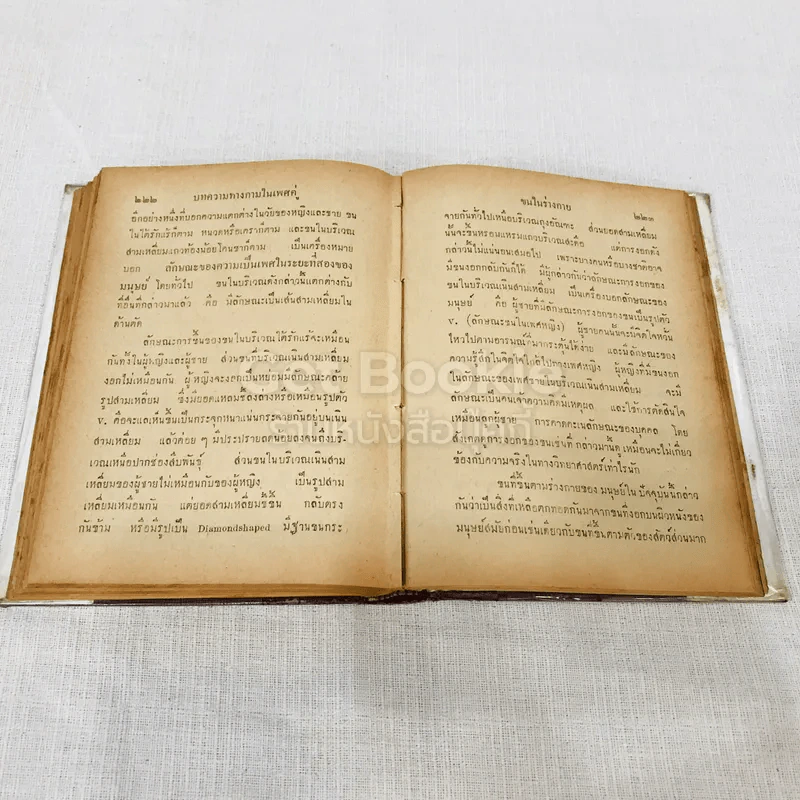 ๒๒๒ บทความทางกามในเพศคู่
อีกอย่างหนึ่งที่บอกความแตกต่างในวัยของหญิงและชาย ขน
ในใต้รักแร้ก็ตาม หนวดหรือเคราก็ตาม และขนในบริเวณ
สามเหลี่ยมแถวท้องน้อยโคนขาก็ตาม เป็นเครื่องหมาย
บอก ลักษณะของความเป็นเพศในระยะที่สองของ
มนุษย์ โดยทั่วไป ขนในบริเวณดังกล่าวนี้แตกต่างกับ
ที่อื่นที่กล่าวมาแล้ว คือ มีลักษณะเป็นเส้นสามเหลี่ยมใน
ด้านตัด
ลักษณะการขึ้นของขนในบริเวณใต้รักแร้จะเหมือน
กันทั้งในผู้หญิงและผู้ชาย ส่วนขนที่บริเวณเนินสามเหลี่ยม
งอกไม่เหมือนกัน ผู้หญิงจะงอกเป็นหย่อมมีลักษณะคล้าย
รูปสามเหลี่ยม ซึ่งมียอดแหลมลงล่างหรือเหมือนรูปตัว
v. คือจะแลเห็นขึ้นเป็นกระจุกหนาแน่นกระจายกันอยู่บนเนิน
สามเหลี่ยม แล้วค่อย ๆ มีประปรายลดน้อยลงจนถึงบริ-
เวณเหนือปากช่องสืบพันธุ์ ส่วนขนในบริเวณเนินสาม
เหลี่ยมของผู้ชายไม่เหมือนกับของผู้หญิง เป็นรูปสาม
เหลี่ยมเหมือนกัน แต่ยอดสามเหลี่ยมชี้ขึ้น กลับตรง
กันข้าม หรือมีรูปเป็น Diamondshaped มีฐานขนกระ
ขนในร่างกาย ๒๒๓
จายกันทั่วไปเหนือบริเวณถุงอัณฑะ ส่วนยอดสามเหลี่ยม
นั้นจะขึ้นหรอมแหรมแถวบริเวณสะดือ แต่การงอกดัง
กล่าวนี้ไม่แน่นอนเสมอไป เพราะบางคนหรือบางชาติอาจ
มีขนงอกกลับกันก็ได้ มีผู้กล่าวกันว่าลักษณะการงอกของ
ขนในบริเวณเนินสามเหลี่ยม เป็นเครื่องบอกลักษณะของ
มนุษย์ คือ ผู้ชายที่มีลักษณะการงอกของขนเป็นรูปตัว
v. (ลักษณะขนในเพศหญิง) ผู้ชายคนนั้นจะมีจิตใจหวั่น
ไหวไปตามอารมณ์ที่มากระตุ้นได้ง่าย และมีลักษณะของ
ความรู้สึกในจิตใจโน้มไปทางเพศหญิง ผู้หญิงที่มีขนงอก
ในลักษณะของเพศชายในบริเวณเนินสามเหลี่ยม จะมี
ลักษณะเป็นคนเจ้าความคิดมีเหตุผล และใช้การตัดสินใจ
เหมือนลูกผู้ชาย การคาดคะเนลักษณะของบุคคล โดย
สังเกตดูการงอกของขนเช่นที่กล่าวมานี้ดูเหมือนจะไม่เกี่ยว
ข้องกับความจริงในทางวิทยาศาสตร์เท่าไรนัก
ขนที่ขึ้นตามร่างกายของมนุษย์ในปัจจุบันนี้กล่าว
กันว่าเป็นสิ่งที่เหลือตกทอดกันมาจากขนที่งอกบนผิวหนังของ
มนุษย์สมัยก่อนเช่นเดียวกับขนที่ขึ้นตามตัวของสัตว์ส่วนมาก